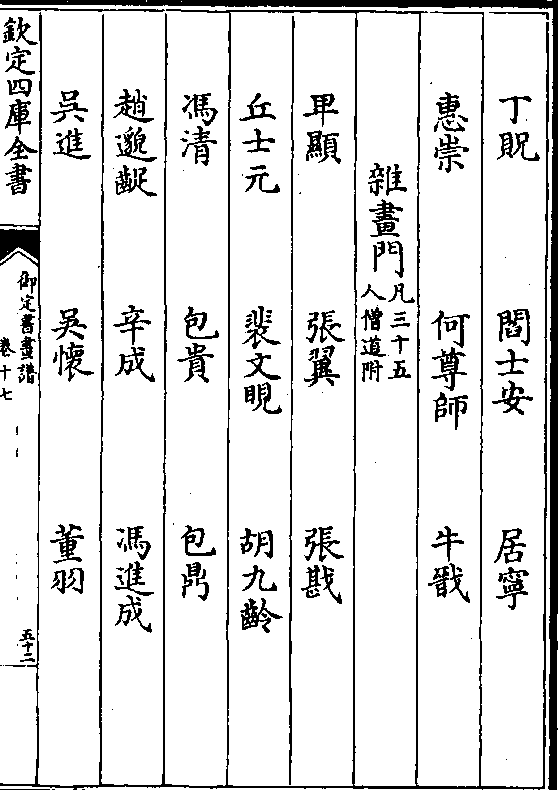 丁貺　閻士安　居寧
惠崇　何尊師　牛戩
雜畫門凡三十五人僧道附
甲顯　張翼　張戡
丘士元　裴文晛　胡九齡
馮清　包貴　包鼎
趙邈齪　辛成　馮進成
吳進　吳懷　董羽
欽定四庫全書　御定書畫譜　卷十七　五十二